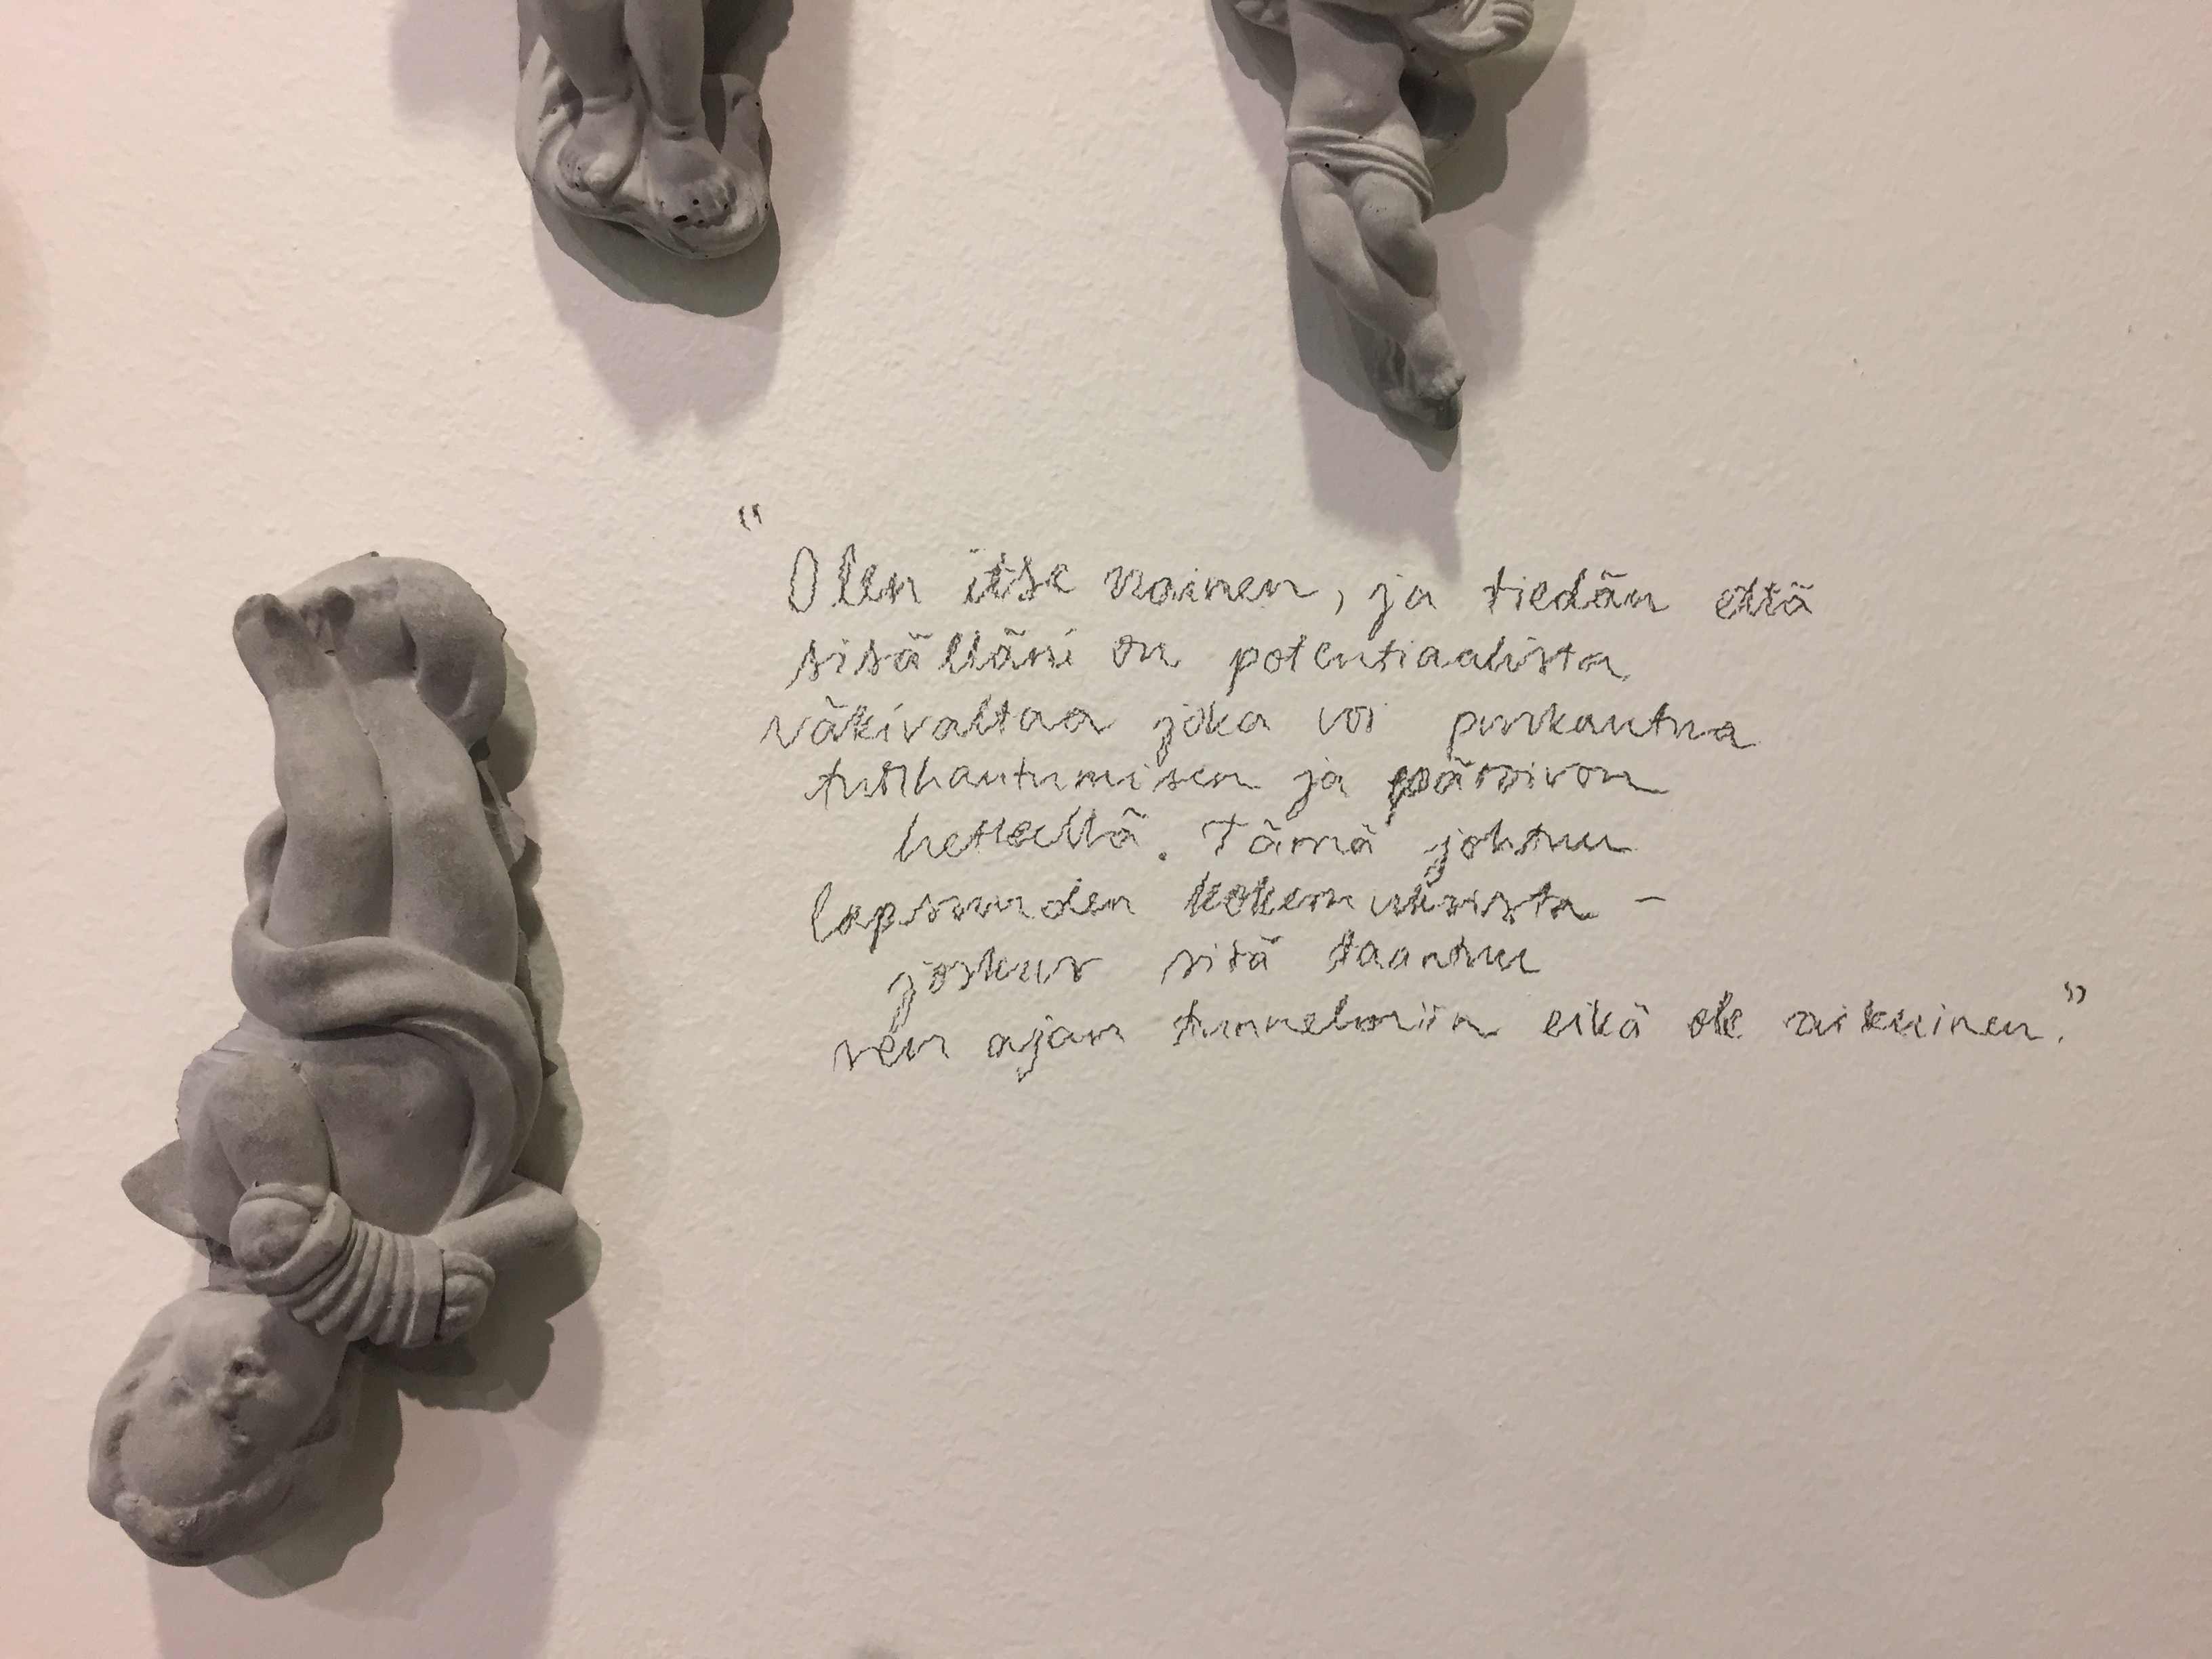 "Olen itse nainen, ja tiedän että
sisälläni on potentiaalista
väkivaltaa joka voi purkautua
turhautumisen ja päroivon
hetkellä. Tämä johtuu
lapsuuden kokemuksista -
joskus sitä taantuu
sen ajan tunnelmiin eikä ole aikuinen."